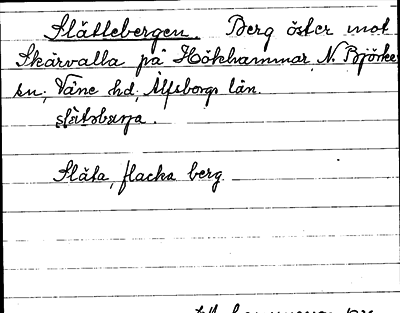 Slättebergen. Berg öster mot
Skärvalla på Hökhammar, N. Björke
sn, Väne hd, Älfsborgs län.
Släta, flacka berg